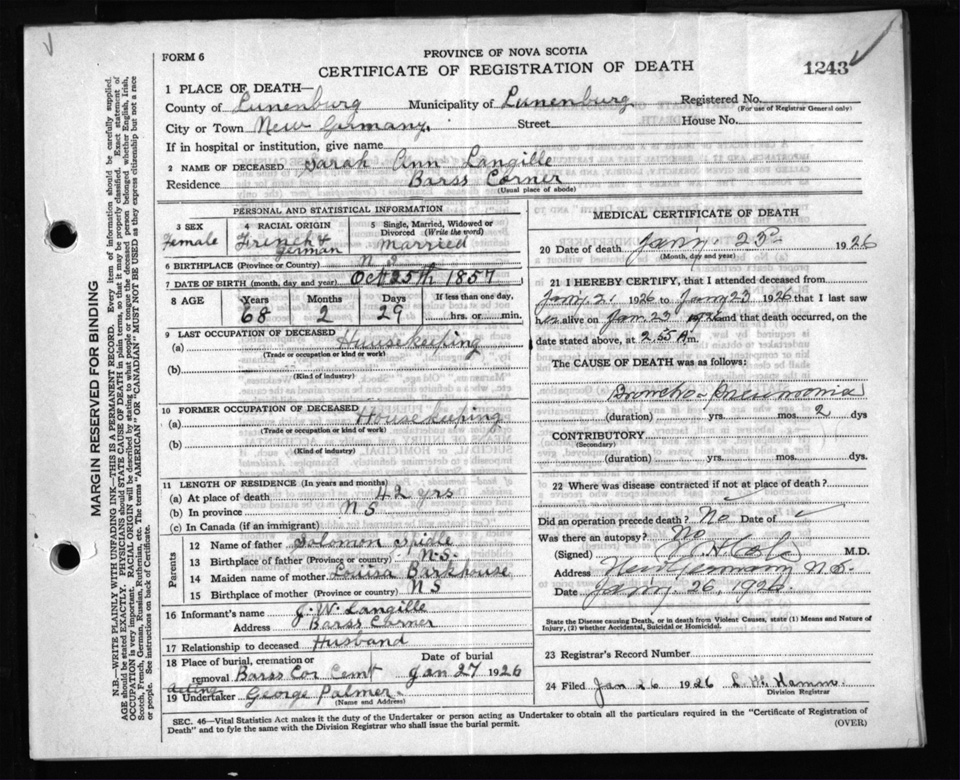 FORM 6
PROVINCE OF NOVA SCOTIA
CERTIFICATE OF REGISTRATION OF DEATH
1243
1 PLACE OF DEATH—
County of Lunenburg Municipality of Lunenburg Registered No.
(For use of Registrar General only)
City or Town New Germany. Street House No.
If in hospital or institution, give name
2 NAME OF DECEASED Sarah Ann Langille
Residence Barss Corner
(Usual place of abode)
PERSONAL AND STATISTICAL INFORMATION
3 SEX 4 RACIAL ORIGIN 5 Single, Married, Widowed or Divorced (Write the word)
Female French & German Married
6 BIRTHPLACE (Province or Country) N S
7 DATE OF BIRTH (month, day and year) Oct 25th 1857
8 AGE Years Months Days If less than one day,
68 2 29 hrs. or min.
9 LAST OCCUPATION OF DECEASED
(a) Housekeeping
(Trade or occupation or kind or work)
(b)
(Kind of industry)
10 FORMER OCCUPATION OF DECEASED
(a) Housekeeping
(Trade or occupation or kind of work)
(b)
(Kind of industry)
11 LENGTH OF RESIDENCE (In years and months)
(a) At place of death 42 yrs
(b) In province N S
(c) In Canada (if an immigrant)
Parents
12 Name of father Solomon Spidle
13 Birthplace of father (Province or country) N.S.
14 Maiden name of mother Louisa Barkhouse
15 Birthplace of mother (Province or country) N S
16 Informant's name J. W. Langille
Address Barss Corner
17 Relationship to deceased Husband
18 Place of burial, cremation or removal Barss Cor Cemt Date of burial Jan 27 1926
Acting
19 Undertaker George Palmer
(Name and Address)
MEDICAL CERTIFICATE OF DEATH
20 Date of death Jany. 23rd 1926
(Month, day and year)
21 I HEREBY CERTIFY, that I attended deceased from
Jany 21 1926 to Jany 23 1926 that I last saw
her alive on Jan. 23 1926 and that death occurred, on the
date stated above, at 2.55 A m.
The CAUSE OF DEATH was as follows:
Broncho-Pneumonia
(duration) yrs. mos. 2 dys
CONTRIBUTORY
(Secondary)
(duration) yrs. mos. dys.
22 Where was disease contracted if not at place of death?
Did an operation precede death? No Date of
Was there an autopsy? No
(Signed) M.D.
Address New Germany N.S.
Date Jany. 26, 1926
State the Disease causing Death, or in death from Violent Causes, state (1) Means and Nature of Injury, (2) whether Accidental, Suicidal or Homicidal.
23 Registrar's Record Number
24 Filed Jan 26 1926
Division Registrar
SEC. 46—Vital Statistics Act makes it the duty of the Undertaker or person acting as Undertaker to obtain all the particulars required in the "Certificate of Registration of
Death" and to fyle the same with the Division Registrar who shall issue the burial permit.
(OVER)
MARGIN RESERVED FOR BINDING
N.B.—WRITE PLAINLY WITH UNFADING INK—THIS IS A PERMANENT RECORD. Every item of information should be carefully supplied.
AGE should be stated EXACTLY. PHYSICIANS should STATE CAUSE OF DEATH in plain terms, so that it may be properly classified. Exact statement of
OCCUPATION is very important. RACIAL ORIGIN will be described by stating to what people or tongue the deceased person belonged whether English, Irish,
Scotch, French, German, Russian, Ruthenian, etc. The terms "AMERICAN" OR "CANADIAN" MUST NOT BE USED as they express citizenship but not a race
or people. See instructions on back of Certificate.